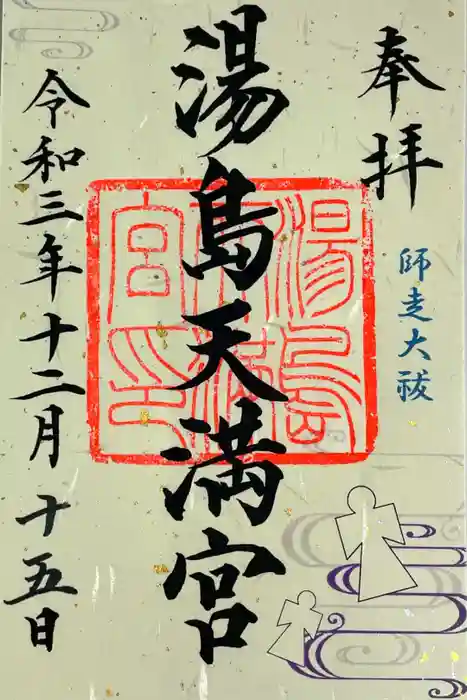 奉拝
師走大祓
湯島天満宮
湯島天満宮印
令和三年十二月十五日